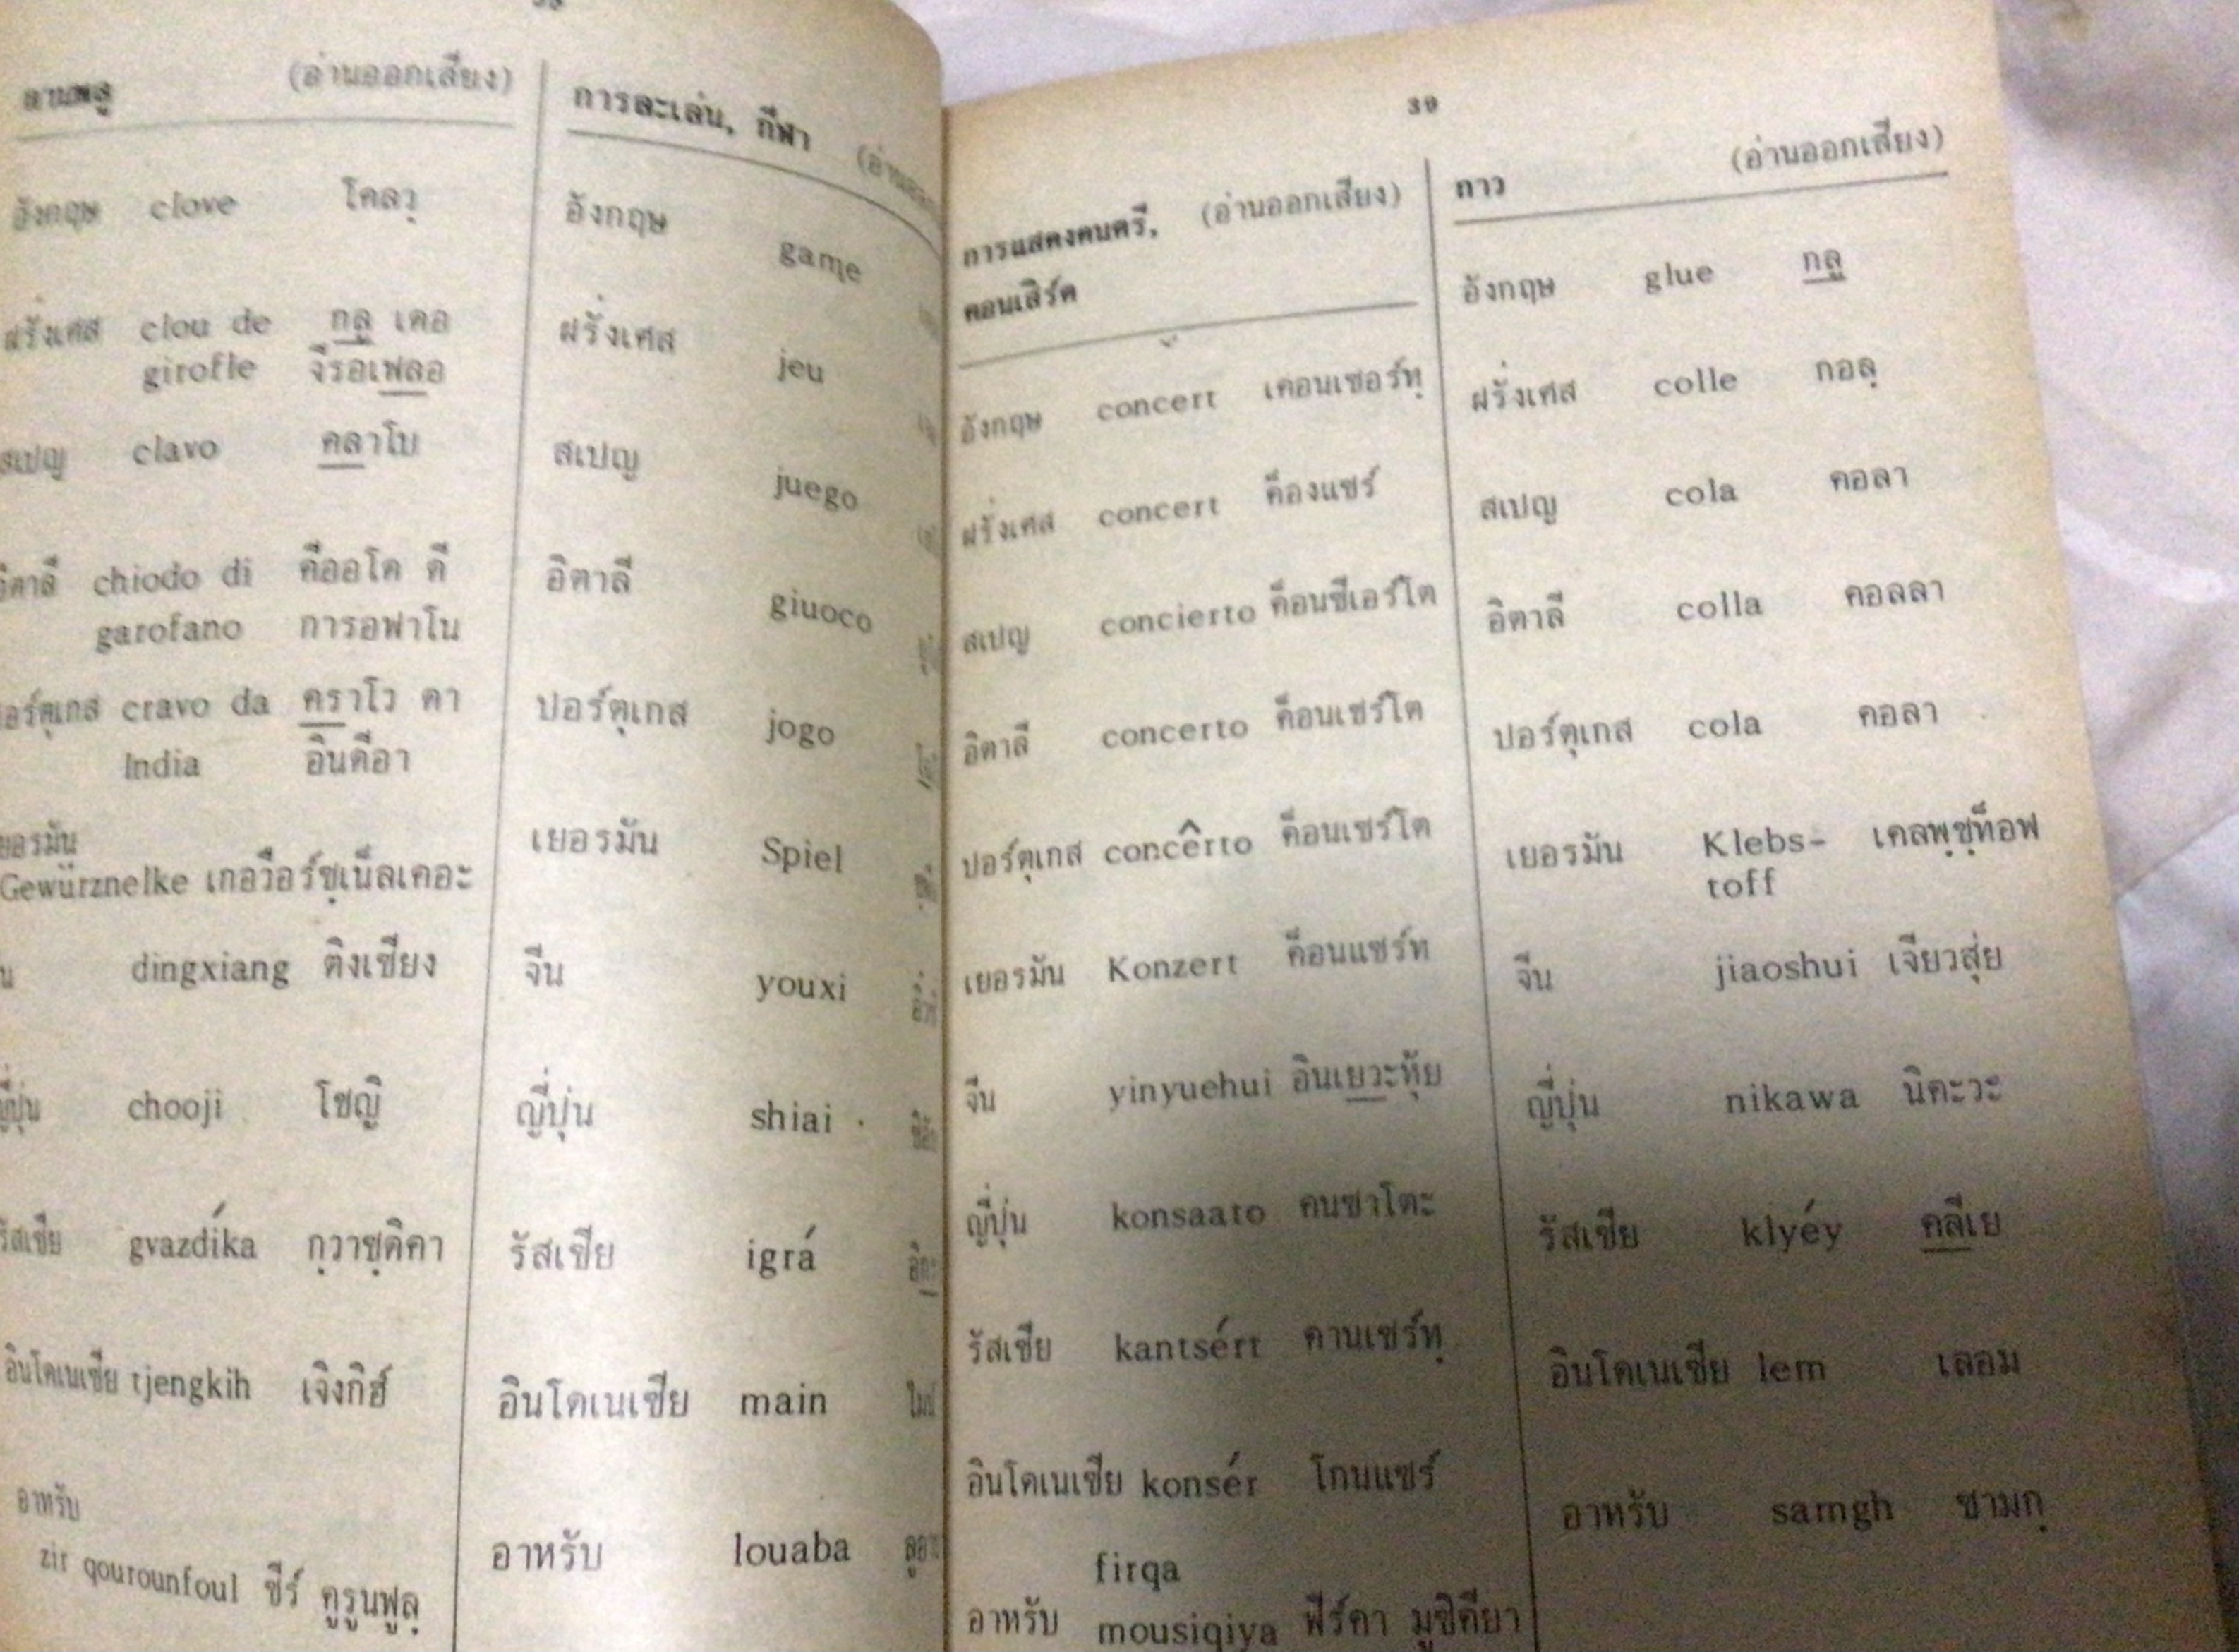 (อ่านออกเสียง)
อังกฤษ clove โคลวฺ
ฝรั่งเศส clou de กลู เดอ
girofle จีรอเฟลอ
สเปญ clavo คลาโบ
อิตาลี chiodo di คีออโด ดี
garofano การอฟาโน
ปอร์ตุเกส cravo da คราโว ดา
India อินดีอา
เยอรมัน
Gewürznelke เกอวืออร์ซฺเน็ลเคอะ
dingxiang ติงเซียง
ญี่ปุ่น chooji โชญิ
รัสเซีย gvazdíka กฺวาซฺดิคา
อินโดเนเซีย tjengkih เจิงกิฮ์
อาหรับ
zir qourounfoul ซีร์ คูรูนฟูลฺ
การละเล่น, กีฬา
อังกฤษ game
ฝรั่งเศส jeu
สเปญ juego
อิตาลี giuoco
ปอร์ตุเกส jogo
เยอรมัน Spiel
จีน youxi
ญี่ปุ่น shiai
รัสเซีย igrá
อินโดเนเซีย main
อาหรับ louaba
39
การแสดงดนตรี, (อ่านออกเสียง)
คอนเสิร์ต
อังกฤษ concert เคอนเซอร์ทฺ
ฝรั่งเศส concert ค็องแซร์
สเปญ concierto ค็อนซีเอร์โต
อิตาลี concerto ค็อนเชร์โต
ปอร์ตุเกส concêrto ค็อนเซร์โต
เยอรมัน Konzert ค็อนแซร์ท
จีน yinyuehui อินเยวะหุ้ย
ญี่ปุ่น konsaato คนซาโตะ
รัสเซีย kantsért คานเซร์ทฺ
อินโดเนเซีย konsér โกนแซร์
firqa
อาหรับ mousiqiya ฟีร์คา มูซิคียา
กาว (อ่านออกเสียง)
อังกฤษ glue กลู
ฝรั่งเศส colle กอลฺ
สเปญ cola คอลา
อิตาลี colla คอลลา
ปอร์ตุเกส cola คอลา
เยอรมัน Klebs- เคลพฺซฺท็อฟ
toff
จีน jiaoshui เจียวสุ่ย
ญี่ปุ่น nikawa นิคะวะ
รัสเซีย klyéy คลีเย
อินโดเนเซีย lem เลอม
อาหรับ samgh ซามกฺ